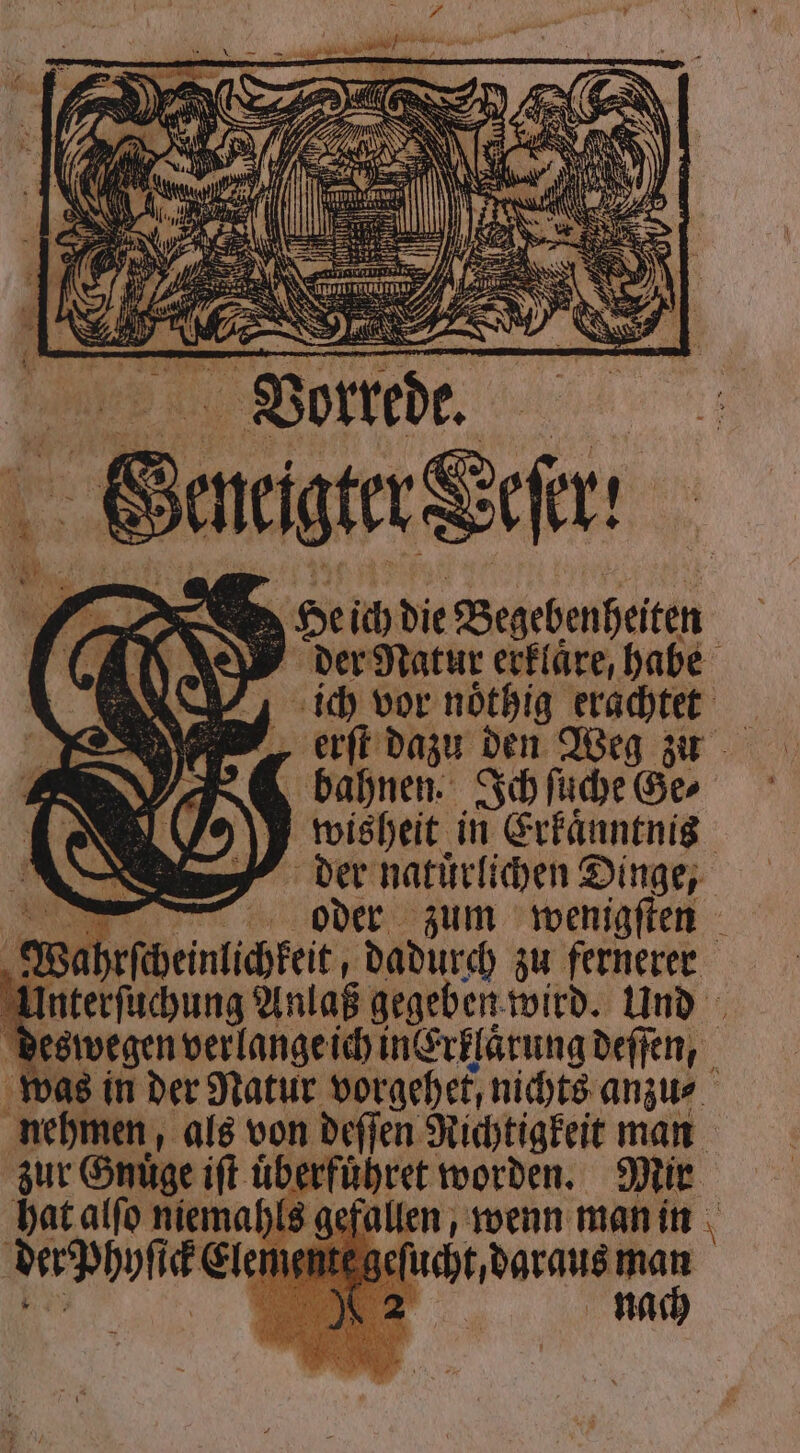 Vorrede.
Geneigter Leſer!
EHe ich die Begebenheiten
der Natur erklaͤre, habe
ich vor noͤthig erachtet
erſt dazu den Weg zu
bahnen. Ich ſuche Ge⸗
wisheit in Erkaͤnntnis
der natuͤrlichen Dinge,
oder zum wenigſten
Wahrſcheinlichkeit, dadurch zu fernerer
Unterſuchung Anlaß gegeben wird. Und
deswegen verlange ich in Erklaͤrung deſſen,
was in der Natur vorgehet, nichts anzu⸗
nehmen, als von deſſen Richtigkeit man
zur Gnuͤge iſt uͤberfuͤhret worden. Mir
hat alſo niemahls gefallen, wenn man in
der Phyſick Elemente geſucht, daraus man
2 nach